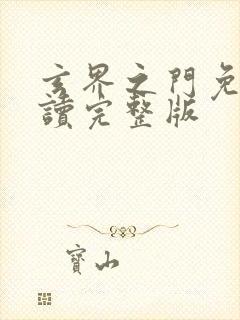 玄界之門免
讀完整版
寶山